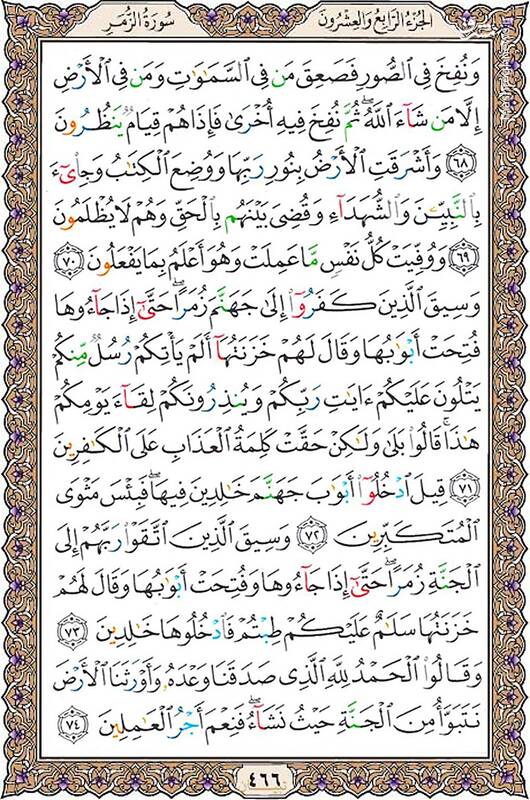 سُورَةُ الزُّمَر
الجُزْءُ الرَّابِعُ وَالعِشْرُونَ
وَنُفِخَ فِى ٱلصُّورِ فَصَعِقَ مَن فِى ٱلسَّمَٰوَٰتِ وَمَن فِى ٱلْأَرْضِ
إِلَّا مَن شَآءَ ٱللَّهُ ۖ ثُمَّ نُفِخَ فِيهِ أُخْرَىٰ فَإِذَا هُمْ قِيَامٌ يَنظُرُونَ
﴿٦٨﴾ وَأَشْرَقَتِ ٱلْأَرْضُ بِنُورِ رَبِّهَا وَوُضِعَ ٱلْكِتَٰبُ وَجِا۟ىٓءَ
بِٱلنَّبِيِّـۧنَ وَٱلشُّهَدَآءِ وَقُضِىَ بَيْنَهُم بِٱلْحَقِّ وَهُمْ لَا يُظْلَمُونَ
﴿٦٩﴾ وَوُفِّيَتْ كُلُّ نَفْسٍ مَّا عَمِلَتْ وَهُوَ أَعْلَمُ بِمَا يَفْعَلُونَ ﴿٧٠﴾
وَسِيقَ ٱلَّذِينَ كَفَرُوٓا۟ إِلَىٰ جَهَنَّمَ زُمَرًا ۖ حَتَّىٰٓ إِذَا جَآءُوهَا
فُتِحَتْ أَبْوَٰبُهَا وَقَالَ لَهُمْ خَزَنَتُهَآ أَلَمْ يَأْتِكُمْ رُسُلٌ مِّنكُمْ
يَتْلُونَ عَلَيْكُمْ ءَايَٰتِ رَبِّكُمْ وَيُنذِرُونَكُمْ لِقَآءَ يَوْمِكُمْ
هَٰذَا ۚ قَالُوا۟ بَلَىٰ وَلَٰكِنْ حَقَّتْ كَلِمَةُ ٱلْعَذَابِ عَلَى ٱلْكَٰفِرِينَ
﴿٧١﴾ قِيلَ ٱدْخُلُوٓا۟ أَبْوَٰبَ جَهَنَّمَ خَٰلِدِينَ فِيهَا ۖ فَبِئْسَ مَثْوَى
ٱلْمُتَكَبِّرِينَ ﴿٧٢﴾ وَسِيقَ ٱلَّذِينَ ٱتَّقَوْا۟ رَبَّهُمْ إِلَى
ٱلْجَنَّةِ زُمَرًا ۖ حَتَّىٰٓ إِذَا جَآءُوهَا وَفُتِحَتْ أَبْوَٰبُهَا وَقَالَ لَهُمْ
خَزَنَتُهَا سَلَٰمٌ عَلَيْكُمْ طِبْتُمْ فَٱدْخُلُوهَا خَٰلِدِينَ ﴿٧٣﴾
وَقَالُوا۟ ٱلْحَمْدُ لِلَّهِ ٱلَّذِى صَدَقَنَا وَعْدَهُۥ وَأَوْرَثَنَا ٱلْأَرْضَ
نَتَبَوَّأُ مِنَ ٱلْجَنَّةِ حَيْثُ نَشَآءُ ۖ فَنِعْمَ أَجْرُ ٱلْعَٰمِلِينَ ﴿٧٤﴾
٤٦٦